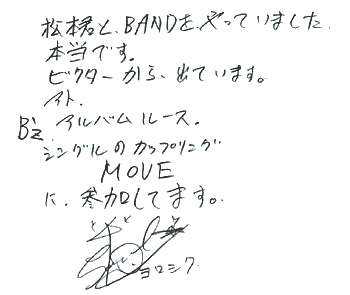 松本君と、BANDを、やっていました。
本当です。
ビクターから、出ています。
アト、
B'z、アルバム ルース。
シングルのカップリング
MOVE
に、参加してます。
ヨロシク